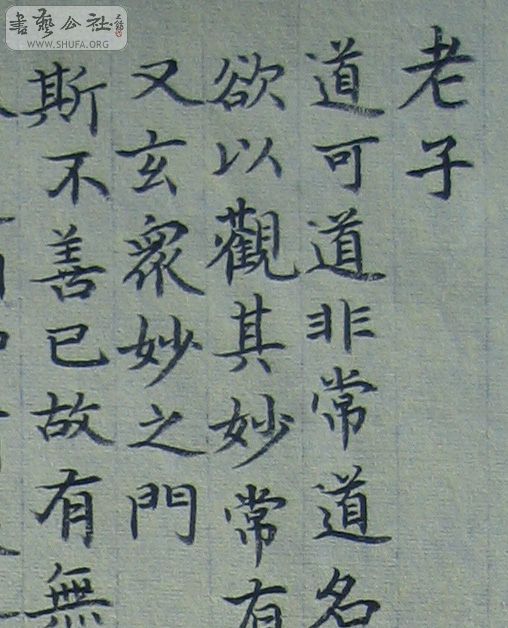 老子
道可道非常道名
欲以觀其妙常有
又玄眾妙之門
斯不善已故有無
書藝公社
WWW.SHUFA.ORG